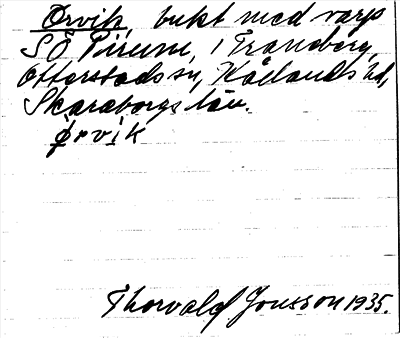 Ørvik, bukt med varp
SÖ Pirum, i Tranberg,
Otterstads sn, Kållands hd,
Skaraborgs län.
ørvik
Thorvald Jonsson 1935.